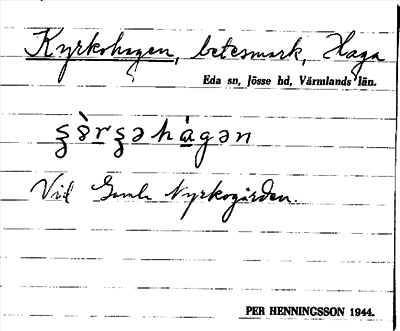 Kyrkohagen, betesmark, Haga
Eda sn, Jösse hd, Värmlands län.
ʂə̀rʂəhàgən
Vid Gamla Kyrkogården.
PER HENNINGSSON 1944.